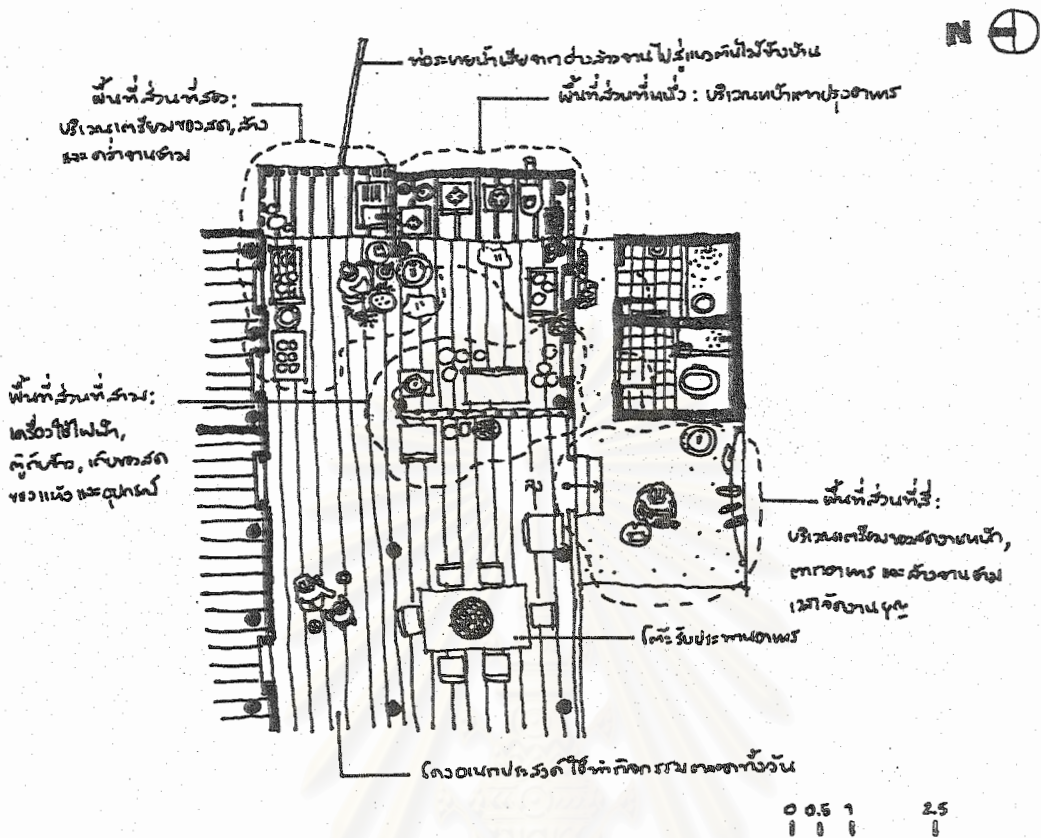 N
ท่อระบายน้ำเสียจากอ่างล้างจานไปสู่แนวต้นไม้ข้างบ้าน
พื้นที่ส่วนที่สอง:
บริเวณเตรียมของสด, ล้าง
และคว่ำจานชาม
พื้นที่ส่วนที่หนึ่ง : บริเวณหน้าเตาปรุงอาหาร
พื้นที่ส่วนที่สาม:
เครื่องใช้ไฟฟ้า,
ตู้กับข้าว, เก็บของสด
ของแห้ง และอุปกรณ์
ลง
พื้นที่ส่วนที่สี่:
บริเวณเตรียมของสดงานหนัก,
เทกอาหาร และล้างจานชาม
เวลาจัดงานบุญ
โต๊ะรับประทานอาหาร
โถงอเนกประสงค์ ใช้ทำกิจกรรมตลอดทั้งวัน
0 0.5 1 2.5